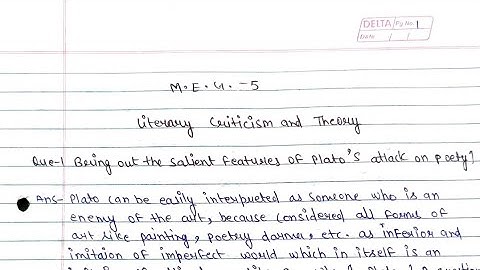 DELTA Pg No. 1
Date / /
M.E.G.-5
Literary Criticism and Theory
Que-1 Bring out the salient features of Plato's attack on poety?
Ans- Plato can be easily interpreted as someone who is an
enemy of the arts because considered all forms of
art like painting, poetry darma, etc. as inferior and
imitaion of imperfect world which in itself is an